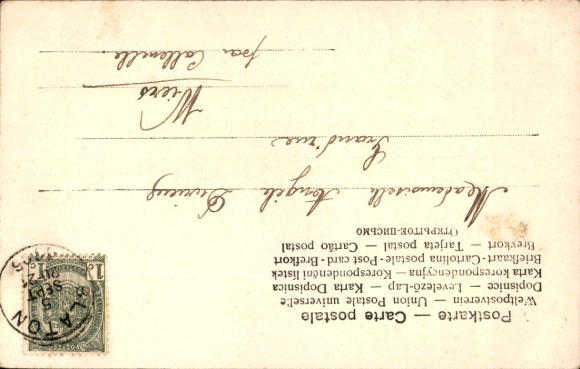 Postkarte — Carte postale
Weltpostverein — Union Postale universelle
Dopisnice — Levelező-Lap — Karta Dopisnica
Karta korespondencyjna — Korespondenční lístek
Briefkaart - Cartolina postale - Post card - Brefkort
Brevkort — Tarjeta postal — Cartão postal
Открытое-письмо
1c 1c
BLATON
5
SEPT
Mademoiselle Angèle
Grand'rue
Wiers
par Callenelle